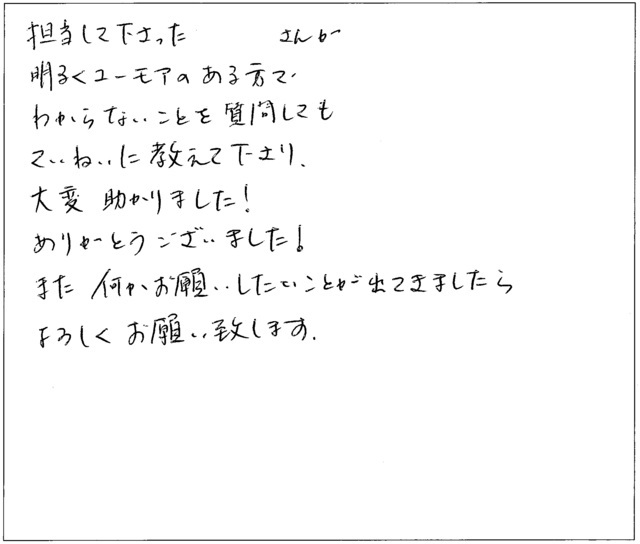 担当して下さった さんが
明るくユーモアのある方で
わからないことを質問しても
ていねいに教えて下さり、
大変 助かりました!
ありがとうございました!
また 何かお願いしたいことが出てきましたら
よろしくお願い致します.